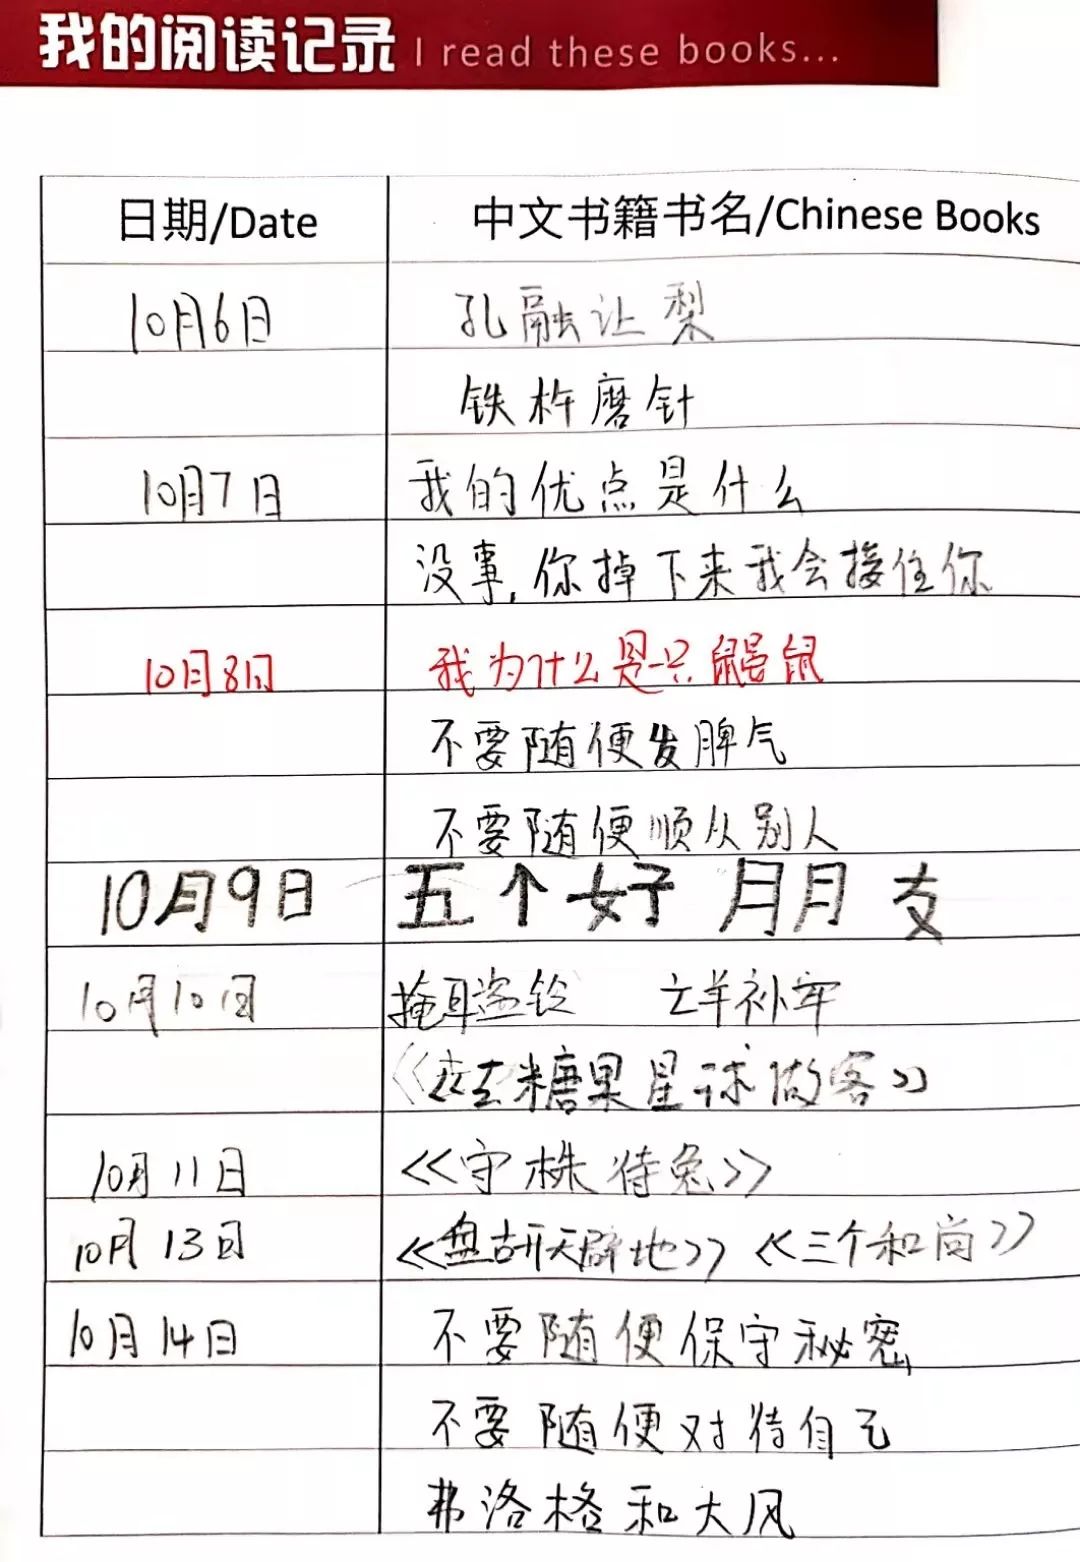 我的阅读记录 I read these books...
日期/Date 中文书籍书名/Chinese Books
10月6日 孔融让梨
铁杵磨针
10月7日 我的优点是什么
没事,你掉下来我会接住你
10月8日 我为什么是一只鼹鼠
不要随便发脾气
不要随便顺从别人
10月9日 五个好朋友
10月10日 掩耳盗铃 亡羊补牢
《去糖果星球做客》
10月11日 《守株待兔》
10月13日 《盘古开天辟地》《三个和尚》
10月14日 不要随便保守秘密
不要随便对待自己
弗洛格和大风